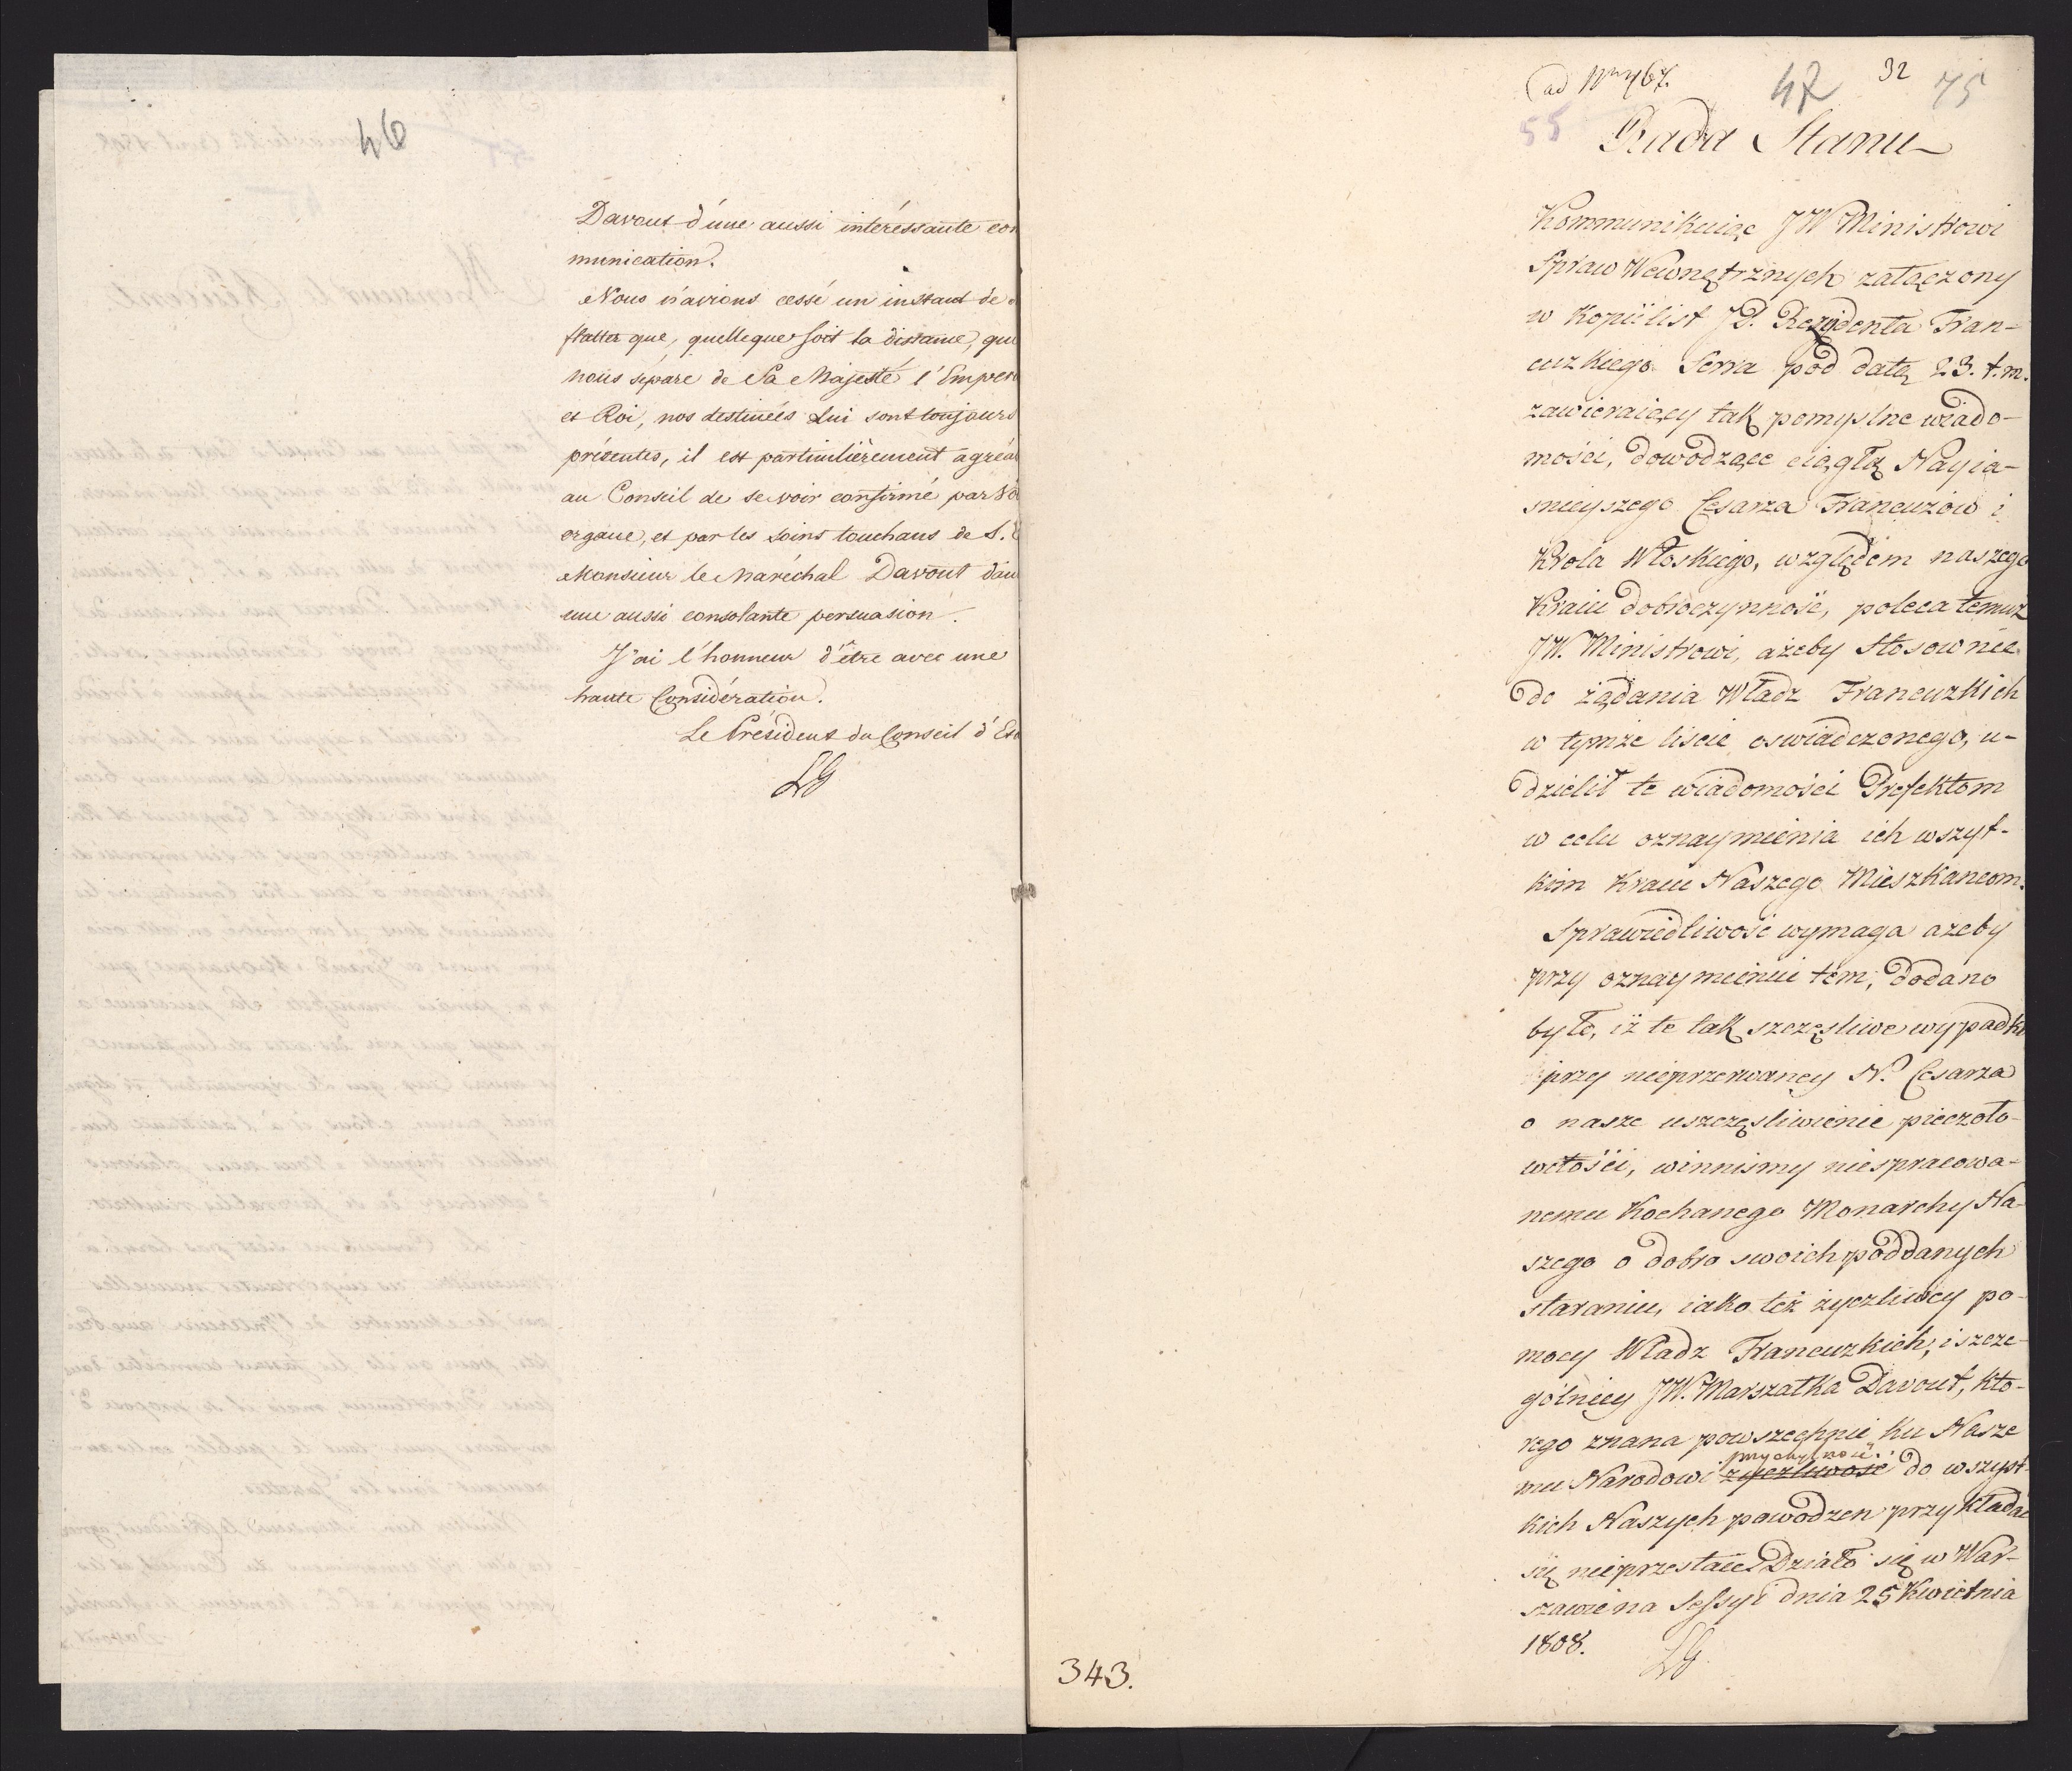 46
Davout d'une aussi intéressante com
munication.
Nous n'avions cessé un instant de
flatter que, quelleque soit la distance, qui
nous sépare de Sa Majesté l'Empere
et Roi, nos destinées Lui sont toujours
présentes, il est particulièrement agréab
au Conseil de se voir confirmé par Vo
organe, et par les soins touchans de S. E
Monsieur le Maréchal Davout dan
une aussi consolante persuasion.
J'ai l'honneur d'être avec une
haute Considération.
Le Président du Conseil d'Eta
LG
ad Nrum 467.
47
32
75
55
Rada Stanu
Kommunikuiąc JW Ministrowi
Spraw Wewnętrznych załączony
w Kopii list JP. Rezydenta Fran-
cuzkiego Serra pod datą 23. t.m.
zawieraiący tak pomyslne wiado-
mości, dowodzące ciągłą Nayia-
snieyszego Cesarza Francuzow i
Krola Włoskiego, względem naszego
Kraiu dobroczynność, poleca temuż
JW. Ministrowi, ażeby stosownie
do żądania Władz Francuzkich
w tymże liscie oswiadczonego, u-
dzielił te wiadomości Prefektom
w celu oznaymienia ich wszyt-
kim Kraiu Naszego Mieszkancom.
Sprawiedliwość wymaga ażeby
przy oznaymieniu tém, dodano
było, iż te tak szczęsliwe wypadki
przy nieprzerwaney N. Cesarza
o nasze uszczęsliwienie pieczoło-
witości, winnismy niespracowa-
nemu Kochanego Monarchy Na-
szego o dobro swoich poddanych
staraniu, iako też życzliwey po-
mocy Władz Francuzkich, i szcze-
gólniey JW. Marszałka Davout, któ-
rego znana powszechnie ku Nasze
przychylność
mu Narodowi życzliwość do wszyst-
kich Naszych powodzen przykładać
się nieprzestaie. Działo się w War-
szawie na Sessyi dnia 25 Kwietnia
1808.
LG
343.